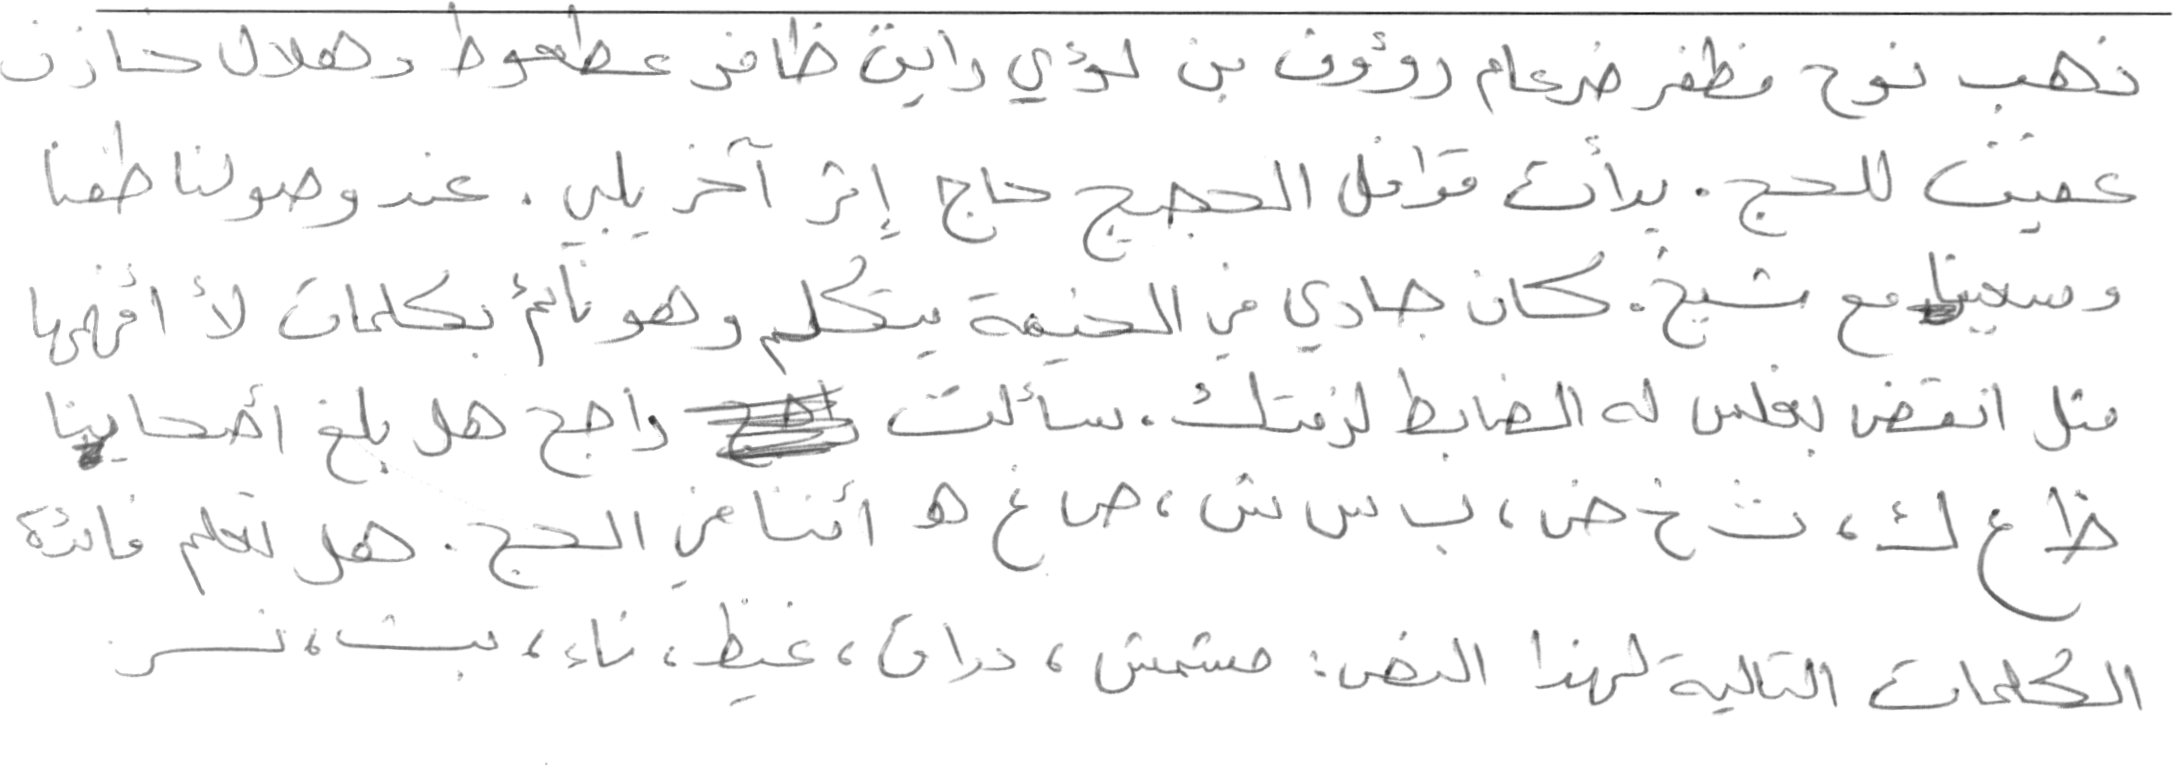 ذهب نوح مظفر ضرغام رؤوف بن لؤي رايق ظافر عطعوط وهلال حازن
عفيف للحج. بدأت قوافل الحجيج حاج إثر آخر يلبي. عند وصولنا طفنا
وسعينا مع شيخ. كان جاري في الخيمة يتكلم وهو نائم بكلمات لا أفهمها
مثل انقض بغلس له الضابط لزمتك. سألت راجح هل بلغ أصحابنا
ظ ع ك، ث خ ض، ب س ش، ص غ ه أننا في الحج. هل تعلم فائدة
الكلمات التالية لهذا النص: مشمش، دراق، غيظ، ناء، بث، نسر